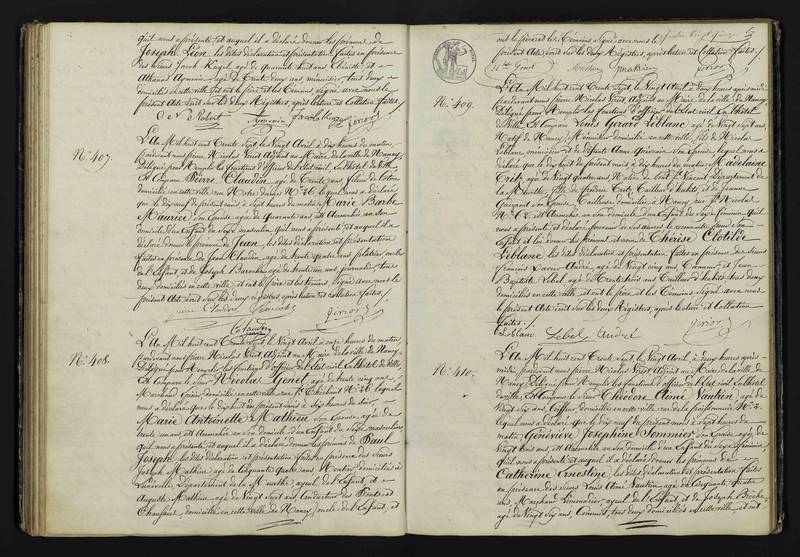 qu'il nous a présenté et auquel il a déclaré donner les prénoms de
Joseph Léon, les dites déclaration et présentation faites en présence
des sieurs Jacob Kugel, âgé de quarante huit ans, et
Athanas Aymonin, âgé de Trente deux ans, menuisier, tous deux
domiciliés en cette ville, et ont le père et les témoins signé avec nous le
présent acte écrit sur les deux Registres, après lecture et collation faites.
N° 407.
L'An Mil huit cent Trente sept, le Vingt Avril, à dix heures du matin,
pardevant nous pierre Nicolas Voirot, Adjoint au Maire de la ville de Nancy,
Délégué pour Remplir les fonctions d'officier de l'État civil, En l'hôtel de ville,
Est Comparu Pierre Claudin, âgé de Trente ans, fileur de coton
domicilié en cette ville, rue Notre Dame N° 26, lequel nous a déclaré
que le dix neuf du présent mois à sept heures du matin, Marie Barbe
Maurice son Épouse âgée de quarante ans, est Accouchée en son
domicile d'un Enfant du sexe masculin qu'il nous a présenté, et auquel il a
déclaré donner le prénom de Jean, les dites déclaration et présentation
faites en présence de Jean Claudin, âgé de trente quatre ans, oncle
de l'Enfant, et de Joseph, âgé de trente ans, journalier, tous
deux domiciliés en cette ville, et ont le père et les témoins signé avec nous le
présent acte écrit sur les deux registres, après lecture et collation faites.
Claudin
N° 408.
L'An Mil huit cent Trente sept, le Vingt Avril, à onze heures du matin,
pardevant nous pierre Nicolas Voirot, Adjoint au Maire de la ville de Nancy,
Délégué pour Remplir les fonctions d'officier de l'État civil, En l'hôtel de Ville,
Est Comparu le Sieur Nicolas Gonet, âgé de trente cinq ans,
Marchand, domicilié en cette ville rue St. N° 26, lequel
nous a déclaré que le dix huit du présent mois à dix heures du soir,
Marie Antoinette Mathieu son Épouse, âgée de
trente un ans, est Accouchée en son domicile d'un Enfant du Sexe masculin
qu'il nous a présenté, et auquel il a déclaré donner les prénoms de Paul
Joseph, les dites déclaration et présentation faites en présence des sieurs
Joseph Mathieu, âgé de Cinquante quatre ans, Rentier, domicilié à
Lunéville, Département de la Meurthe, ayeul de l'Enfant, et
Auguste Mathieu, âgé de Vingt Sept ans, Conducteur des Ponts et
Chaussées, domicilié en cette ville de Nancy, oncle de l'Enfant, et
ont le père et les Témoins signé avec nous le
présent Acte écrit sur les deux Registres, après lecture et Collation faites.
Mathieu
N° 409.
L'An Mil huit cent Trente sept, le Vingt Avril, à deux heures après midi,
pardevant nous Pierre Nicolas Voirot, Adjoint au Maire de la ville de Nancy,
Délégué pour Remplir les fonctions d'officier de l'État civil, En l'hôtel
de Ville, Est Comparu Louis Leblanc, âgé de Vingt sept ans,
Natif de Nancy, Menuisier, domicilié en cette ville, fils de Nicolas
Leblanc, menuisier, et de son Épouse, lequel nous a
déclaré que le dix huit du présent mois, à dix heures du matin, Madelaine
Critz, âgée de Vingt quatre ans, Native de
la Meurthe, fille de frédéric Critz, Tailleur d'habits, et de Jeanne
son Épouse, Tailleuse, domiciliée à Nancy, rue St. Nicolas
N° 62, est Accouchée en son domicile d'un Enfant du Sexe féminin qu'il
nous a présenté, et déclaré provenir de ses œuvres, le reconnaître pour son
Enfant et lui donner les prénoms et nom de Thérèse Clotilde
Leblanc, les dites déclaration et présentation faites en présence des sieurs
François Xavier André, âgé de Vingt cinq ans, Commis, et Jean
Baptiste Lebel, âgé de Trente trois ans, Tailleur d'habits, tous deux
domiciliés en cette ville, et ont le père et les Témoins signé avec nous
le présent Acte écrit sur les deux Registres, après lecture et Collation
faites.
Leblanc Lebel André
N° 410.
L'An Mil huit cent Trente sept, le Vingt Avril, à deux heures après
midi, pardevant nous Pierre Nicolas Voirot, Adjoint au Maire de la ville de
Nancy, Délégué pour Remplir les fonctions d'officier de l'État civil, En l'hôtel
de ville, Est Comparu le Sieur Théodore Aimé Vautrin, âgé de
Vingt Six ans, Coiffeur, domicilié en cette ville, rue de la poissonnerie N° 2,
lequel nous a déclaré que le dix neuf du présent mois à sept heures du
matin, Geneviève Joséphine Sommier son Épouse, âgée de
Vingt trois ans, est Accouchée en son domicile d'un Enfant du Sexe féminin
qu'il nous a présenté, et auquel il a déclaré donner les prénoms de
Catherine Ernestine, les dites déclaration et présentation faites
en présence des sieurs Louis Aimé Vautrin, âgé de Cinquante quatre
ans, Marchand Limonadier, ayeul de l'Enfant, et de Joseph,
âgé de Vingt Six ans, Commis, tous deux domiciliés en cette ville, et ont